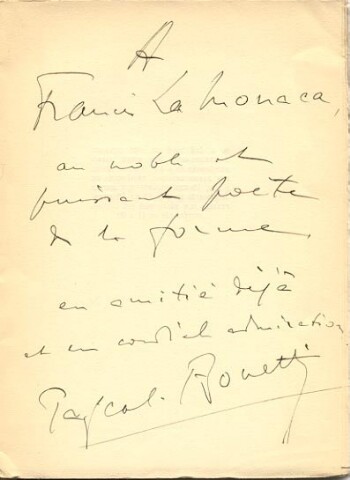 A
Francis La Monaca,
au noble et
puissant poète
de la forme
en amitié déjà
et en cordial admiration
Pascal-Bonetti